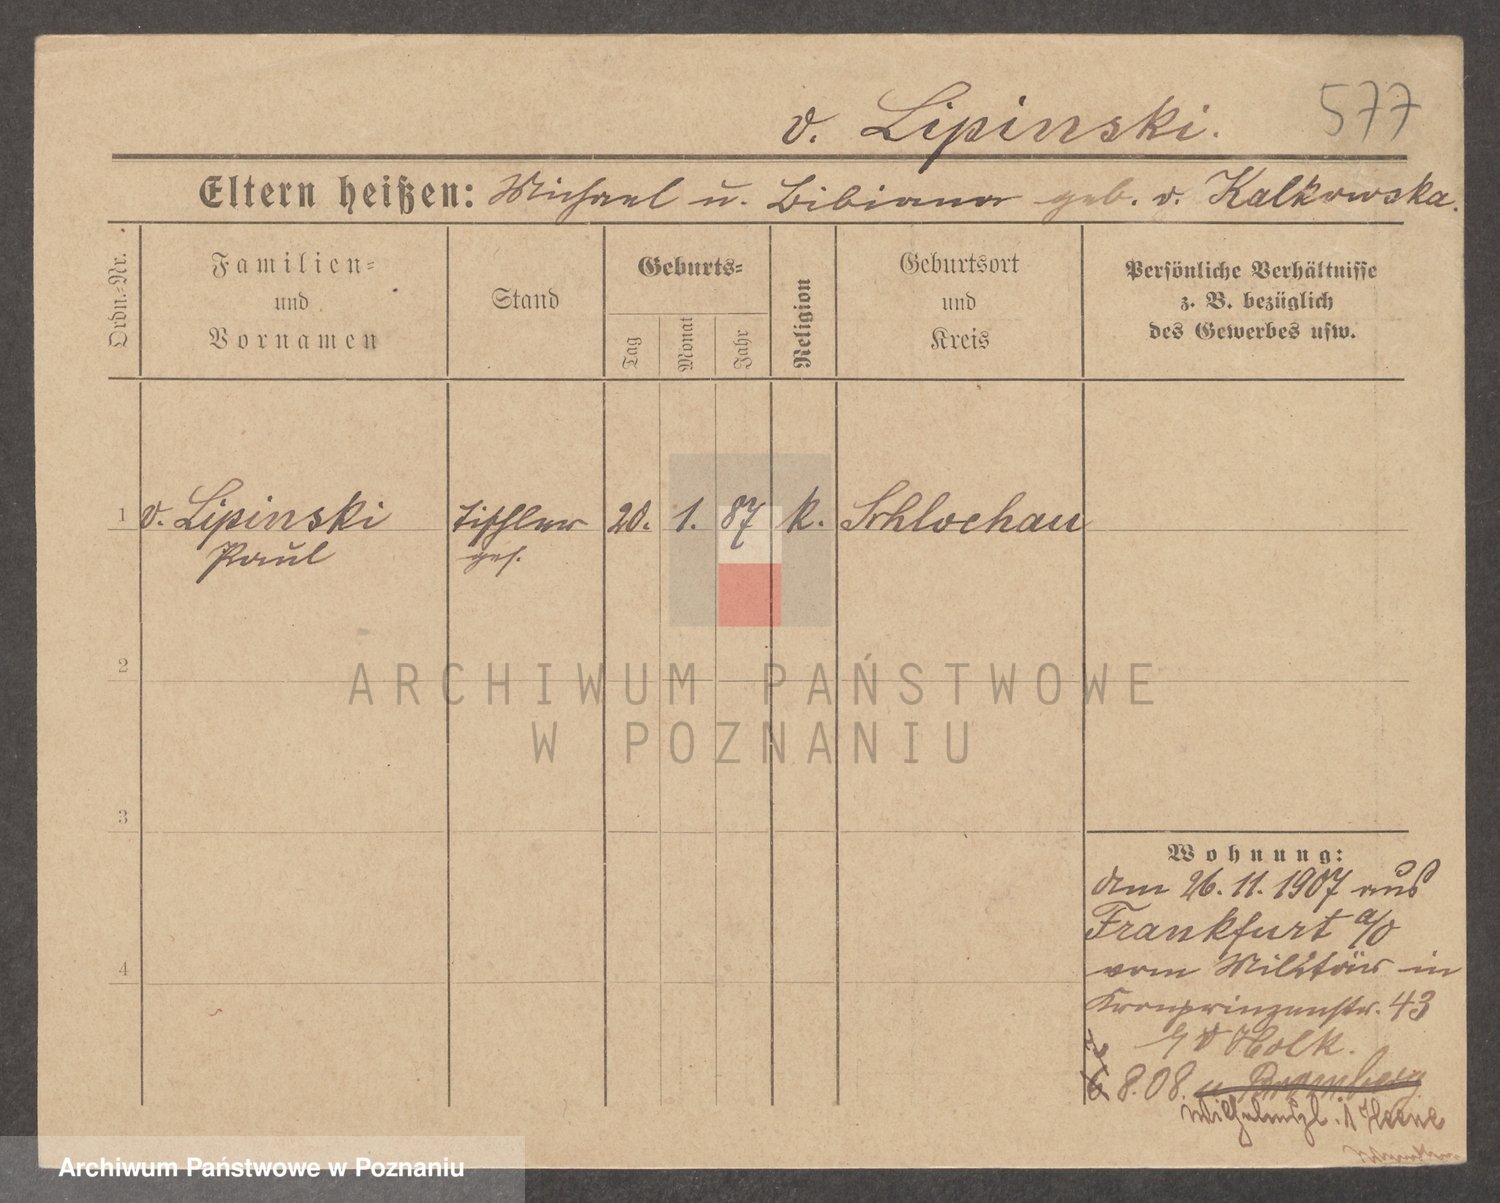 577
v. Lipinski.
Eltern heißen: Michael u. Bibiana geb. v. Kalkowska.
Ordn.-Nr.
Familien-
und
Vornamen
Stand
Geburts-
Tag
Monat
Jahr
Religion
Geburtsort
und
Kreis
Persönliche Verhältnisse
z. B. bezüglich
des Gewerbes usw.
1 v. Lipinski Tischler 20. 1. 87 k. Schlochau
Paul ges.
2
3
4
Wohnung:
Am 26.11.1907 aus
Frankfurt a/O
vom Militär in
Kronprinzenstr. 43
Holk.
8.08.
ARCHIWUM PAŃSTWOWE
W POZNANIU
Archiwum Państwowe w Poznaniu